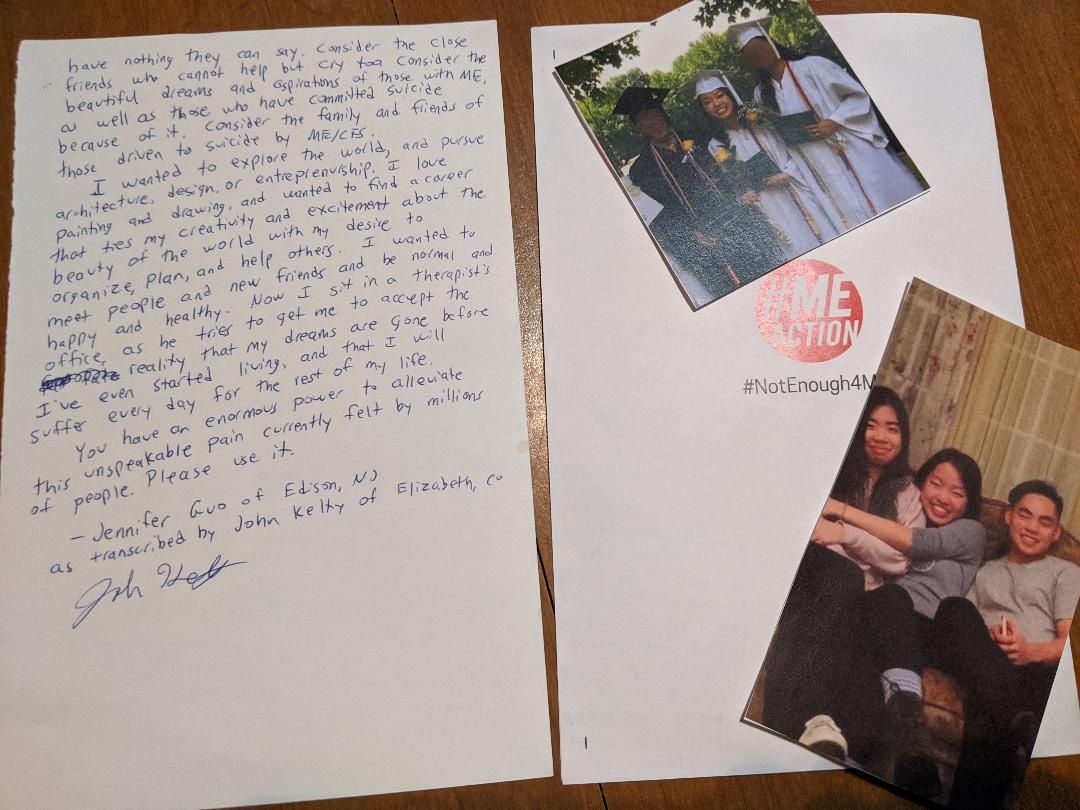 have nothing they can say. Consider the close
friends who cannot help but cry too. Consider the
beautiful dreams and aspirations of those with ME,
as well as those who have committed suicide
because of it. Consider the family and friends of
those driven to suicide by ME/CFS.
I wanted to explore the world, and pursue
architecture, design, or entreprenurship. I love
painting and drawing, and wanted to find a career
that ties my creativity and excitement about the
beauty of the world with my desire to
organize, plan, and help others. I wanted to
meet people and new friends and be normal and
happy and healthy. Now I sit in a therapist's
office, as he tries to get me to accept the
reality that my dreams are gone before
I've even started living, and that I will
suffer every day for the rest of my life.
You have an enormous power to alleviate
this unspeakable pain currently felt by millions
of people. Please use it.
- Jennifer Guo of Edison, NJ
as transcribed by John Kelty of Elizabeth, CO
#ME
ACTION
#NotEnough4M